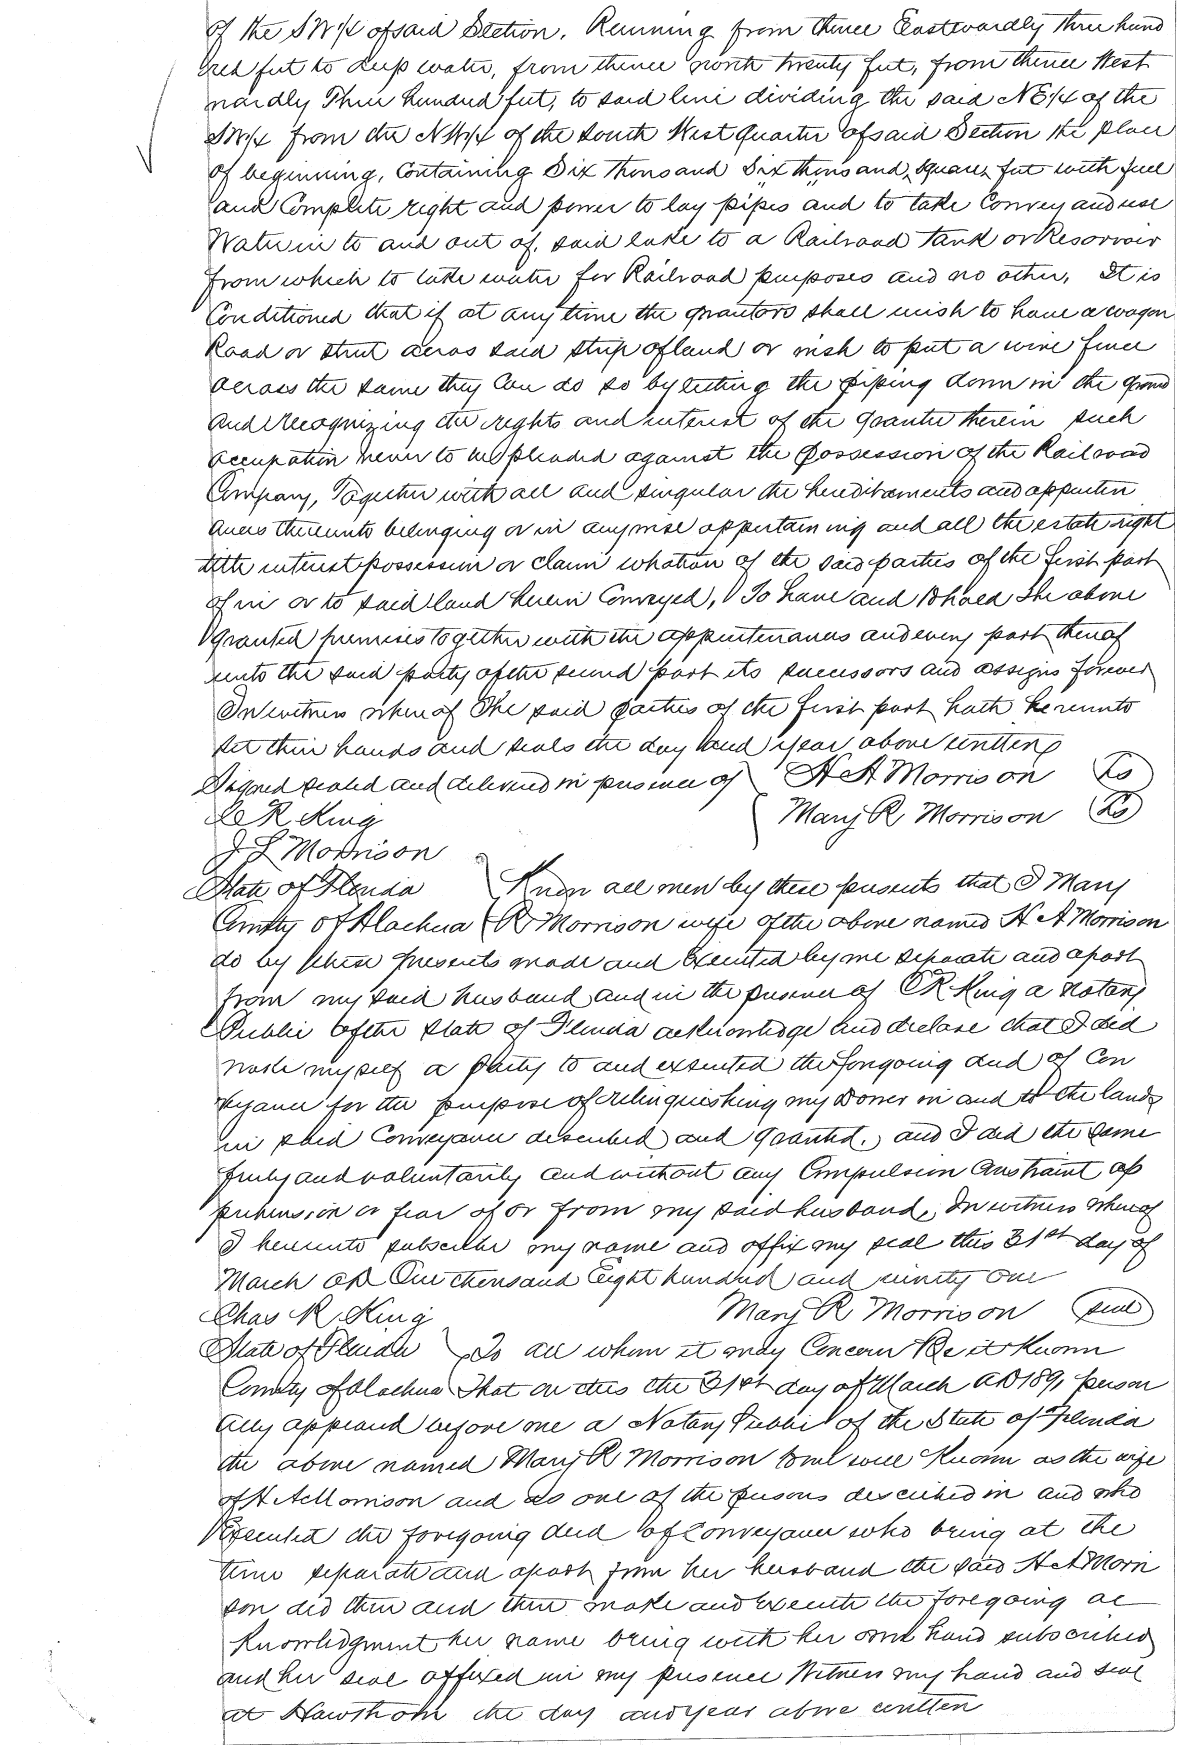 of the SW¼ of said Section. Running from thence Eastwardly three hund
red feet to deep water, from thence north twenty feet, from thence West
wardly Three hundred feet, to said line dividing the said NE¼ of the
SW¼ from the NW¼ of the South West quarter of said Section the place
of beginning, Containing Six thousand Six thousand square feet with full
and Complete right and power to lay pipes and to take Convey and use
Water in to and out of, said lake to a Railroad tank or Resorvoir
from which to take water for Railroad purposes and no other, It is
Conditioned that if at any time the grantors shall wish to have a wagon
Road or street across said strip of land or wish to put a wire fence
across the same they Can do so by letting the piping down in the ground
and recognizing the rights and interest of the grantee therein such
occupation never to be pleaded against the possession of the Railroad
Company, Together with all and singular the hereditaments and appurten
ances thereunto belonging or in anywise appertaining and all the estate right
title interest possession or claim whatsoever of the said parties of the first part
of in or to said land herein Conveyed, To have and to hold The above
granted premises together with the appurtenances and every part thereof
unto the said party of the second part its successors and assigns forever
In witness whereof The said parties of the first part hath hereunto
set their hands and seals the day and year above written
Signed sealed and delivered in presence of H A Morrison LS
C R King Mary R Morrison LS
J L Morrison
State of Florida Know all men by these presents that I Mary
County of Alachua R Morrison wife of the above named H A Morrison
do by these presents made and Executed by me separate and apart
from my said husband and in the presence of C R King a Notary
Public of the State of Florida acknowledge and declare that I did
make myself a party to and executed the foregoing deed of Con
veyance for the purpose of relinquishing my Dower in and to the lands
in said Conveyance described and granted, and I did the same
freely and voluntarily and without any Compulsion Constraint ap
prehension or fear of or from my said husband, In witness whereof
I hereunto subscribe my name and affix my seal this 31st day of
March AD One thousand Eight hundred and ninety one
Chas R King Mary R Morrison seal
State of Florida To all whom it may Concern Be it Known
County of Alachua That on this the 31st day of March AD 1891 person
ally appeared before me a Notary Public of the State of Florida
the above named Mary R Morrison to me well Known as the wife
of H A Morrison and as one of the persons described in and who
Executed the foregoing deed of Conveyance who being at the
time separate and apart from her husband the said H A Morri
son did then and there make and Execute the foregoing ac
knowledgment her name being with her own hand subscribed
and her seal affixed in my presence Witness my hand and seal
at Hawthorn the day and year above written